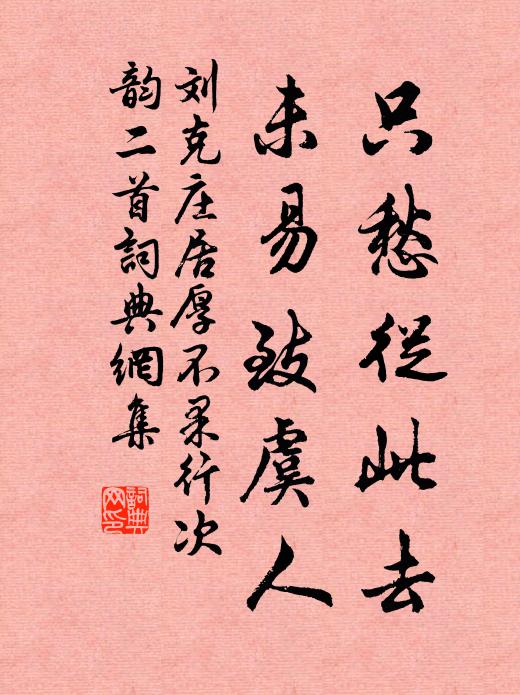 只愁從此去
未易致虞人
刘克庄居厚不果行次
韵二首詞典網集
詞典
网印